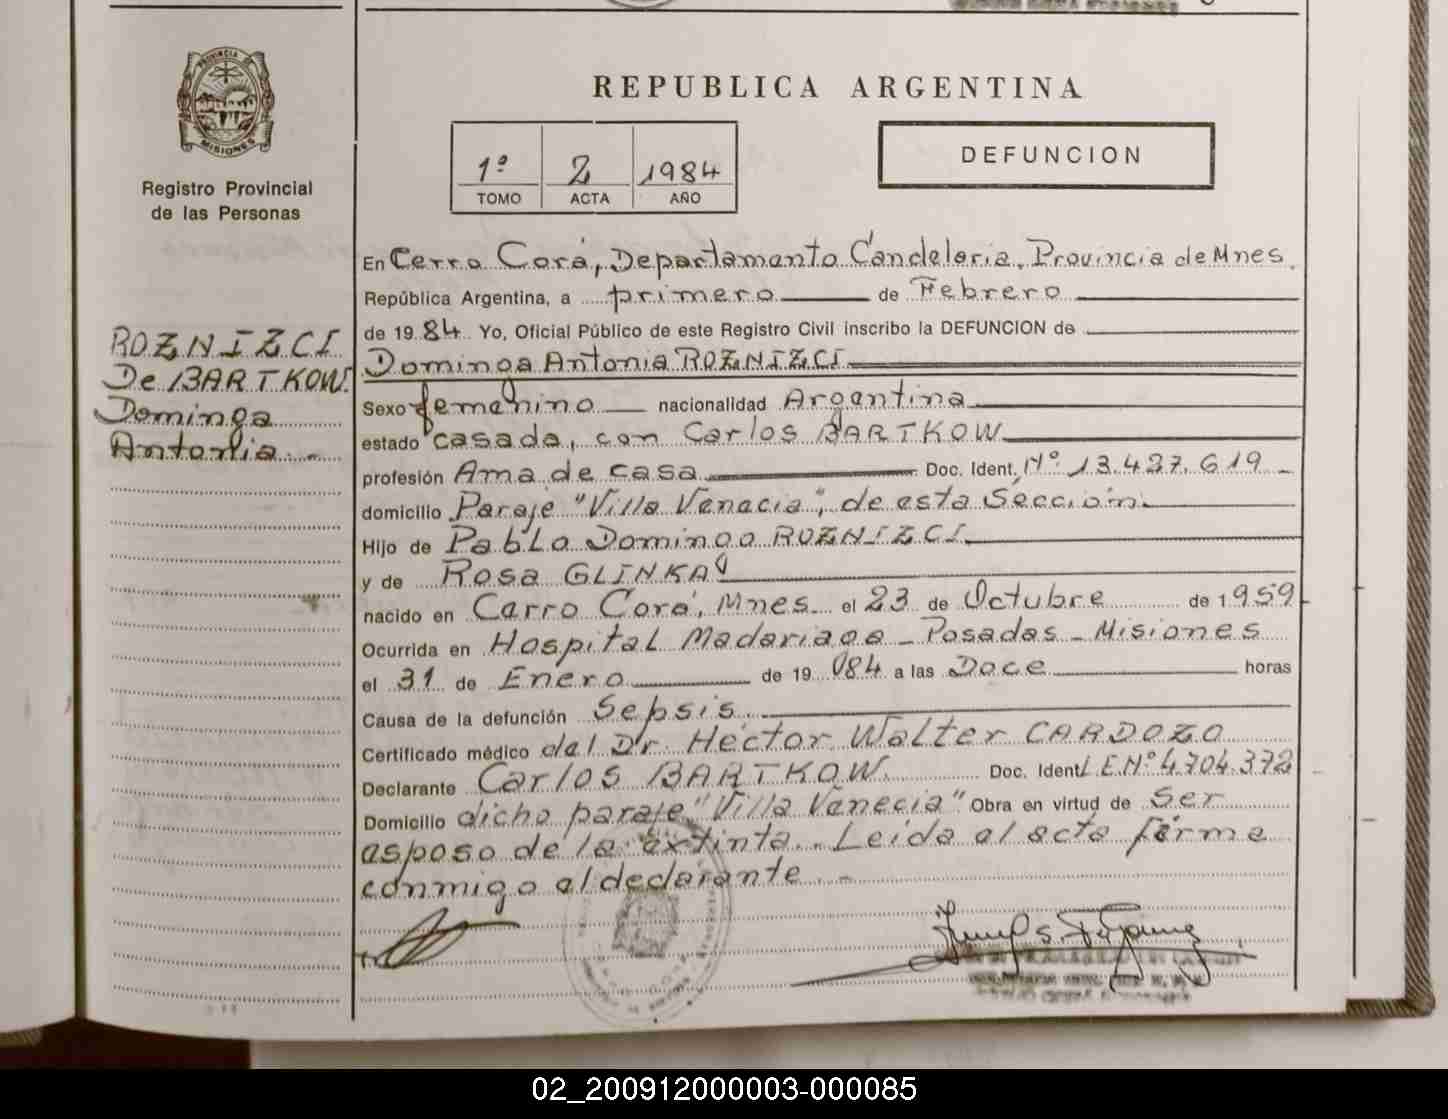 PROVINCIA DE
MISIONES
Registro Provincial
de las Personas
REPUBLICA ARGENTINA
1º 2 1984
TOMO ACTA AÑO
DEFUNCION
ROZNIZCI
De BARTKOW.
Dominga
Antonia.-
En Cerro Corá, Departamento Candelaria, Provincia de Mnes.
República Argentina, a primero de Febrero
de 19 84 Yo, Oficial Público de este Registro Civil inscribo la DEFUNCION de
Dominga Antonia ROZNIZCI
Sexo femenino nacionalidad Argentina
estado casada, con Carlos BARTKOW
profesión Ama de casa Doc. Ident. Nº 13.427.619 -
domicilio Paraje "Villa Venecia", de esta Sección.
Hijo de Pablo Domingo ROZNIZCI.
y de Rosa GLINKA
nacido en Cerro Corá, Mnes. el 23 de Octubre de 1959
Ocurrida en Hospital Madariaga - Posadas - Misiones
el 31 de Enero de 19 084 a las Doce horas
Causa de la defunción Sepsis.
Certificado médico del Dr. Héctor Walter CARDOZO
Declarante Carlos BARTKOW. Doc. Ident. L.E.Nº 4.704.372
Domicilio dicho paraje "Villa Venecia" Obra en virtud de ser
esposo de la extinta.. Leida el acta firma
conmigo el declarante.-
02_200912000003-000085